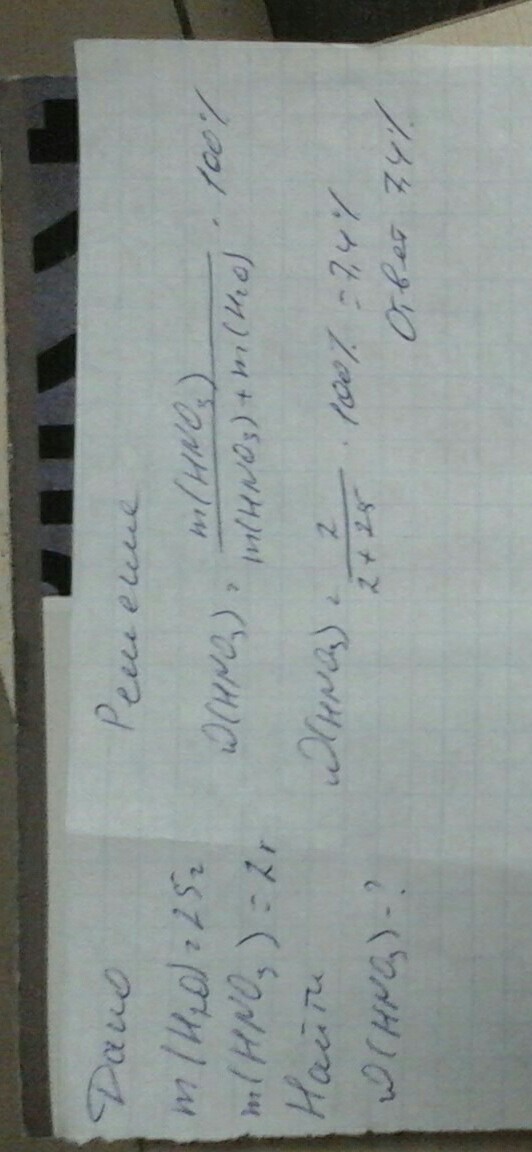 Дано
m(H₂O) = 25г
m(HNO₃) = 2г
Найти
ω(HNO₃) - ?
Решение
ω(HNO₃) = m(HNO₃) / m(HNO₃) + m(H₂O) · 100%
ω(HNO₃) = 2 / 2 + 25 · 100% = 7,4%
Ответ 7,4%